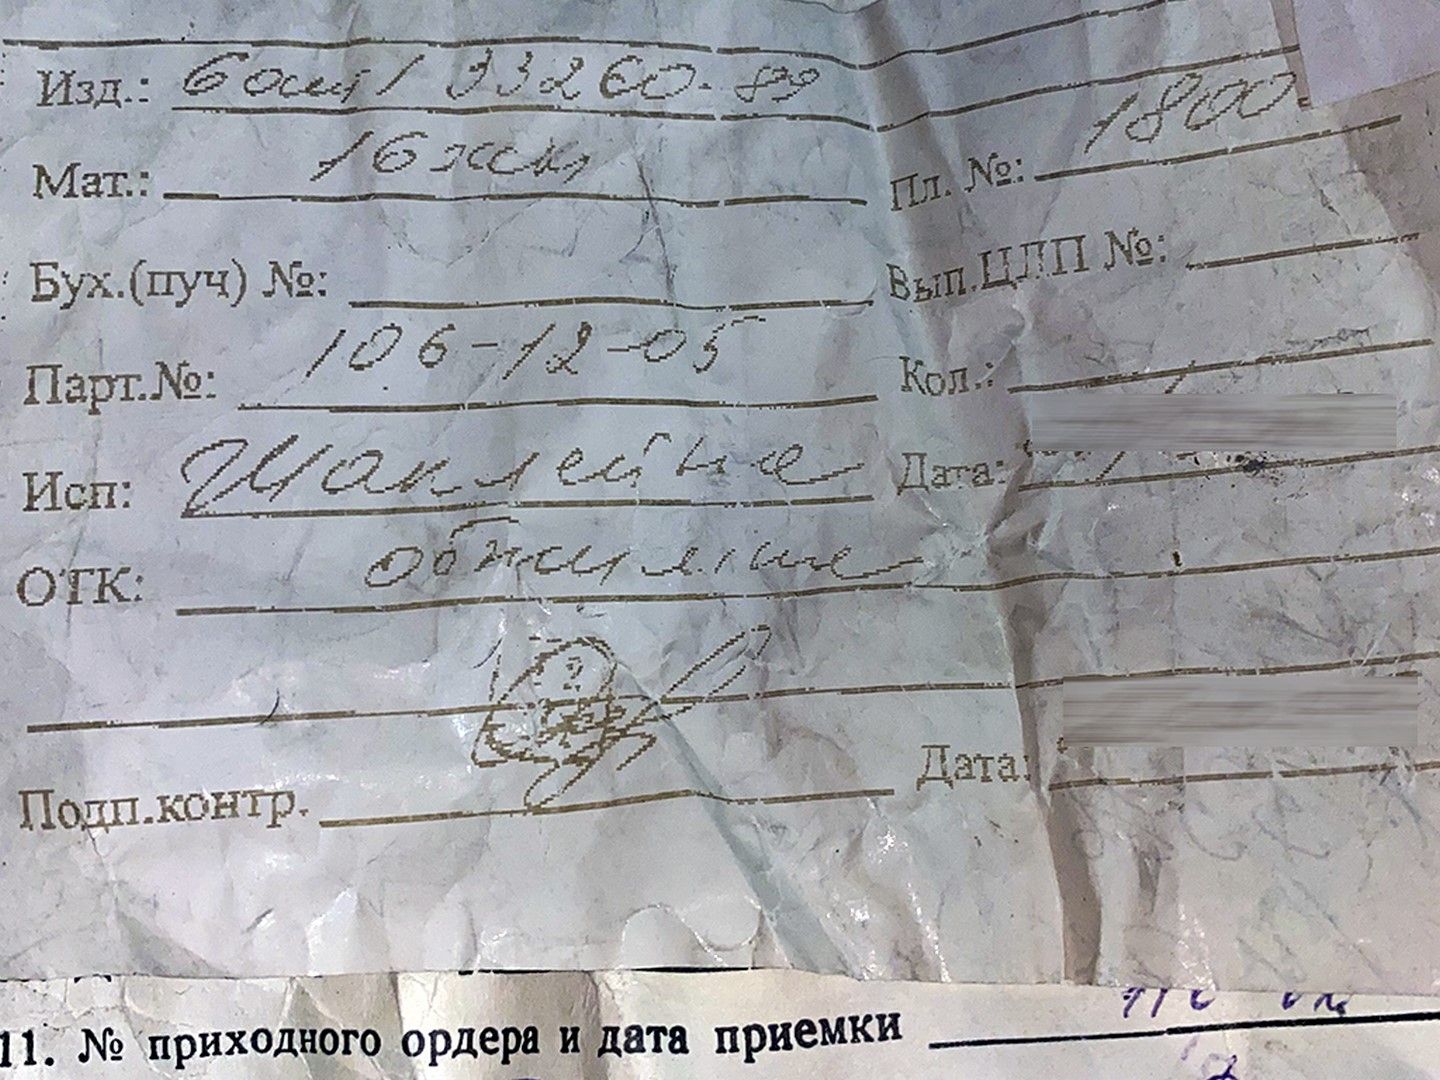 Изд.: болт 1 33260-89
Мат.: 16хсн Пл. №: 1800
Бух.(пуч) №: Вып.ЦЛП №:
Парт.№: 106-12-05 Кол.:
Исп: Дата:
ОТК:
Подп.контр. Дата:
11. № приходного ордера и дата приемки